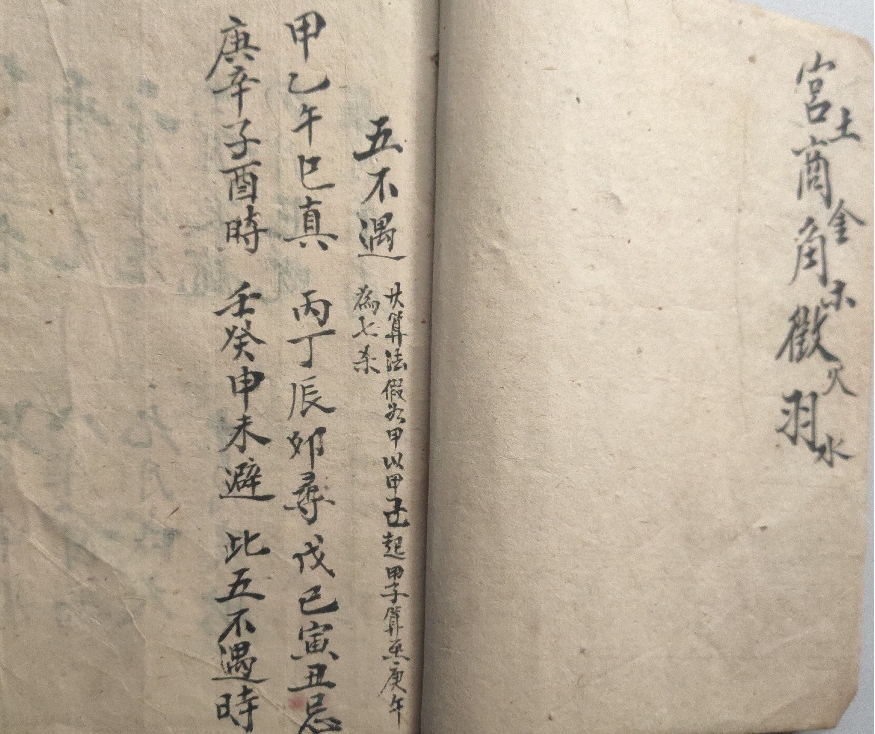 宮土商金角木徵火羽水
五不遇
其算法假如甲以甲己起甲子算至庚午
為七杀
甲乙午巳真 丙丁辰卯尋 戊己寅丑忌
庚辛子酉時 壬癸申未避 此五不遇時